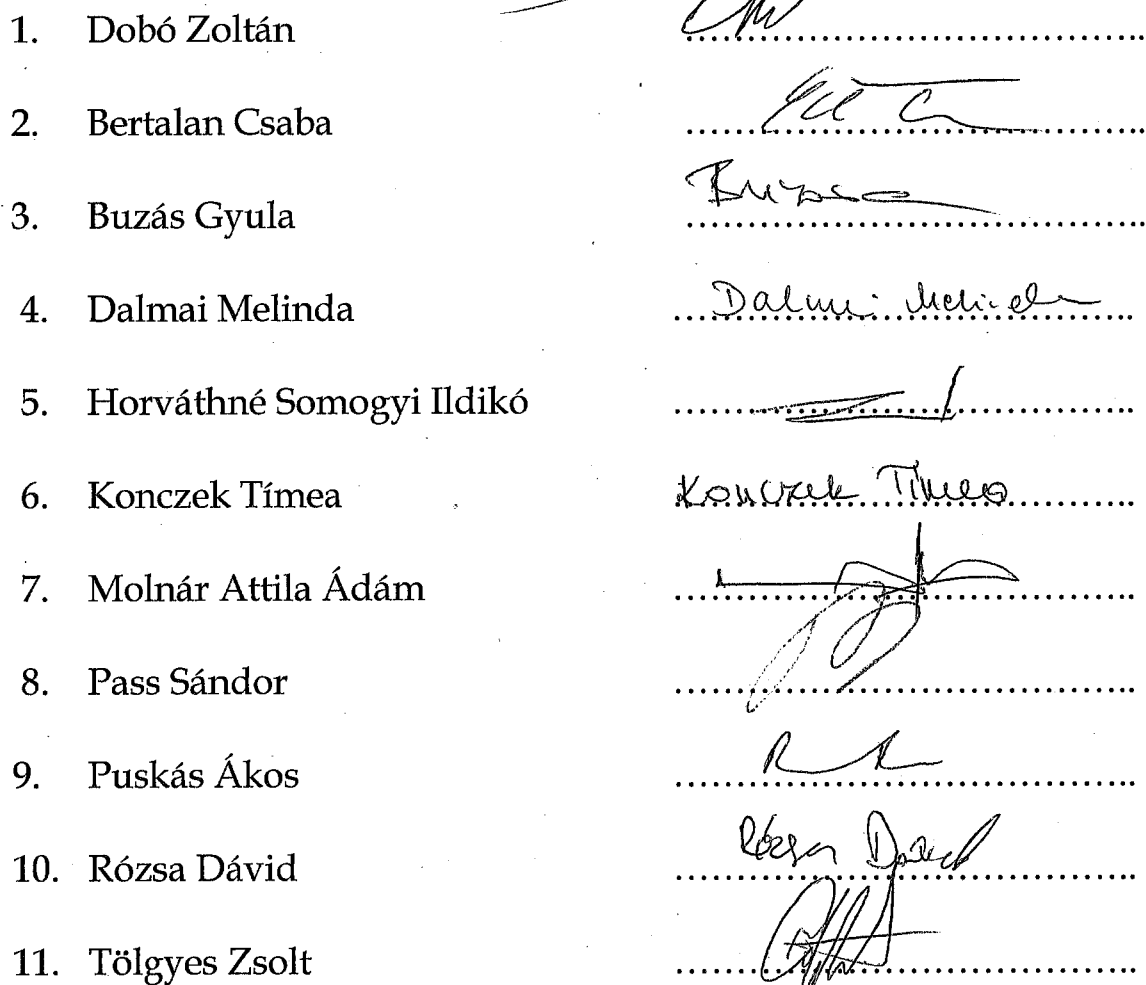 1. Dobó Zoltán ........................................
2. Bertalan Csaba ........................................
3. Buzás Gyula Buzás ........................................
4. Dalmai Melinda Dalmai Melinda ........................................
5. Horváthné Somogyi Ildikó ........................................
6. Konczek Tímea Konczek Tímea ........................................
7. Molnár Attila Ádám ........................................
8. Pass Sándor ........................................
9. Puskás Ákos ........................................
10. Rózsa Dávid Rózsa Dávid ........................................
11. Tölgyes Zsolt ........................................